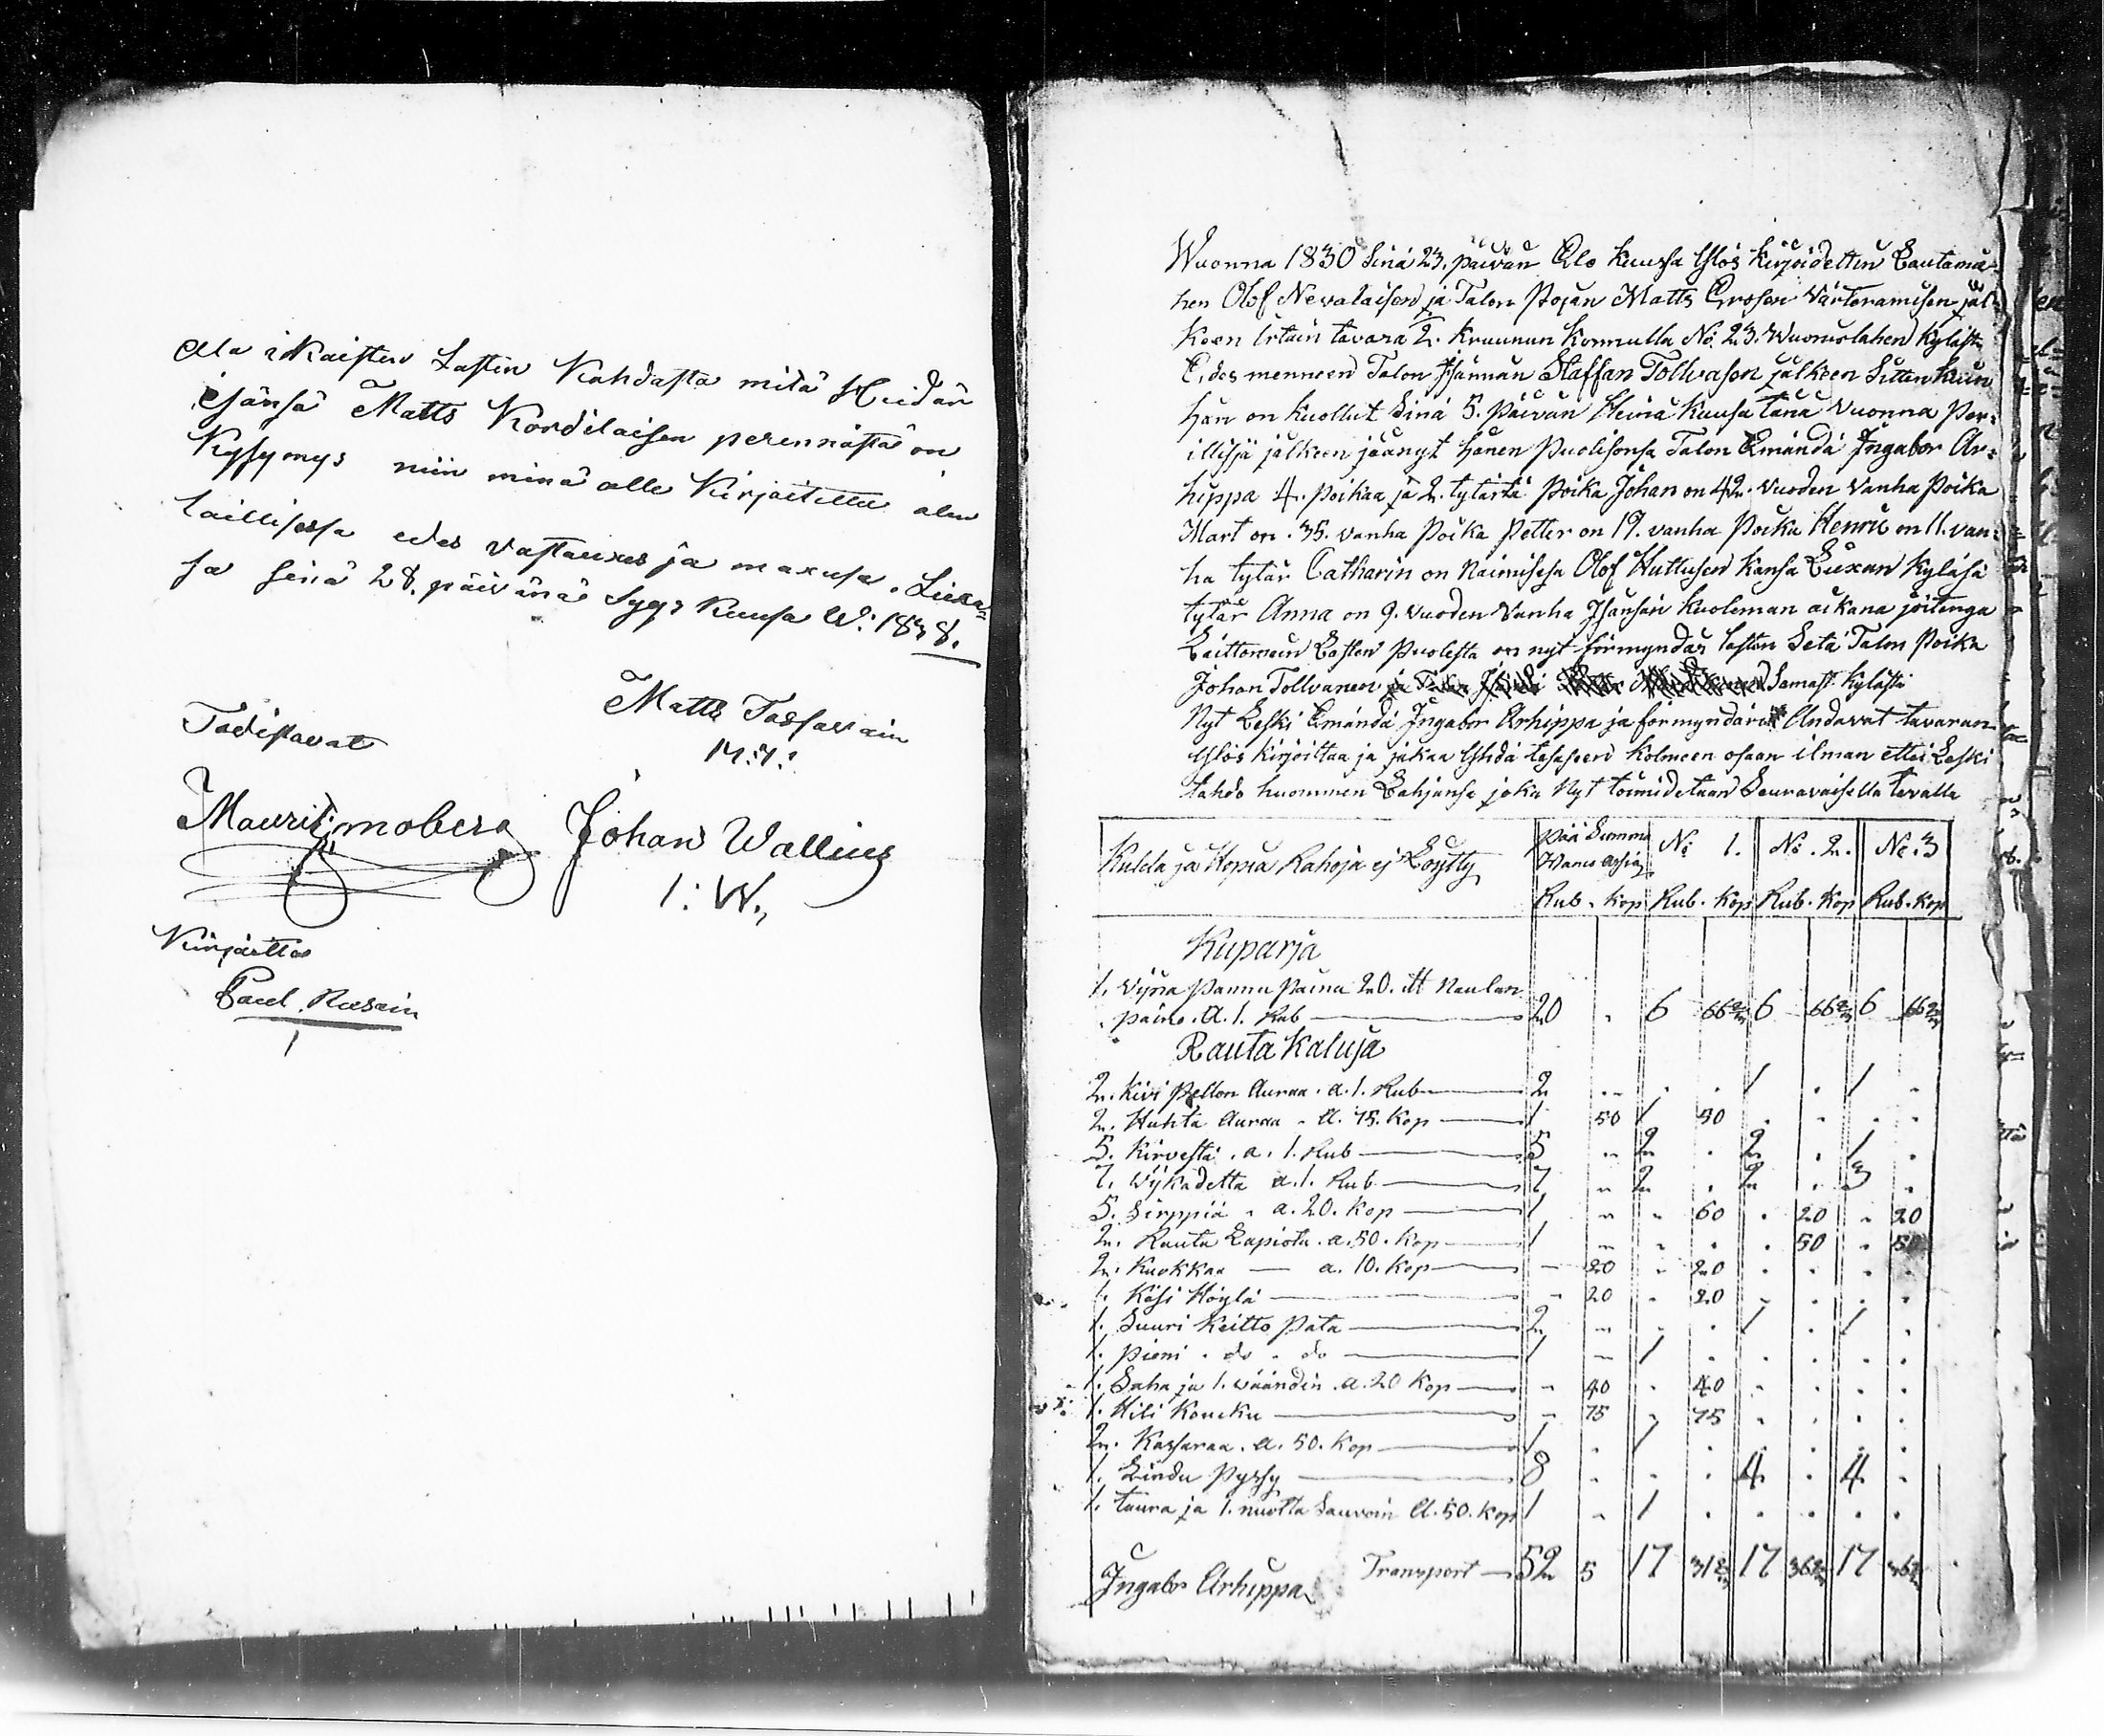 Ala ikaisten Lasten Kohdasta mitä Heidän
isänsä Matts Kordelaisen perinnöstä on
Kysymys niin minä alle Kirjoitettu olen
laillisessa edes vastauxes ja maxusa. Liexa=
sa sinä 28. päivänä Syys Kuusa W: 1838.
Matts Tossavain
M:T:
Todistavat
Maurits moberg Johan Wallius
I: W.
Kirjoittaa
Paul Rusain
Wuonna 1830 Sinä 23. päivän Elo Kuussa Ylös Kirjoidettin Lautamie
hen Olof Nevalaisen ja Talon Pojan Matts Erosen Värteramisen jäl=
Keen Irtain tavara 1/2. Kruunun Konnulla No. 23. Wuonislahen Kylästä
Edes menneen Talon Isännän Staffan Tollvasen jälkeen Sitten Kuin
hän on Kuollut Sinä 5. Päivän Heinä Kuusa tänä Vuonna Per=
illisiä jälkeen jäänyt hänen Puolisonsa Talon Emändä Ingabor Ar=
hippa 4. Poikaa ja 2. tytärtä Poika Johan on 42. Vuoden Vanha Poika
Mart on. 35. vanha Poika Petter on 19. vanha Poika Henric on 11. van=
ha tytär Catharin on Naimisesa Olof Huttusen Kansa Liexan Kylästä
tytär Anna on 9. Vuoden Vanha Isänsän Kuoleman aikana joitenga
Laittomain Lasten Puolesta on nyt förmyndär lasten Setä Talon Poika
Johan Tollvanen Samast Kylästä
Nyt Leski Emändä Ingabor Arhippa ja förmyndäri Andavat tavaran
Ylös Kirjoittaa ja jakaa Yhdä tasaseen Kolmeen osaan ilman ettei Leski
tahdo huommen Lahjansa joka Nyt toimidetaan Seuravaisella tavalla
Kulda ja Hopia Rahoja ej Löytty Pää Summa No 1. No. 2. No. 3
Rub. Kop Rub. Kop Rub. Kop Rub. Kop
Kuparja
1. Vijna Pannu Paina 20. tt Naulan
paino. A. 1. Rub 20 . 6 66 2/3 6 66 2/3 6 66 2/3
Rauta Kaluja
2. Kivi Pellon Auraa. a. 1. Rub 2 .. . . 1 . 1 .
2. Huhta Auraa. A. 75. Kop 1 50 1 50 . . . .
5. Kirvestä. a. 1. Rub 5 .. 2 . 2 . 1 .
7. Wijkadetta a. 1. Rub 7 .. 2 . 2 . 3 .
5. Sirppiä. a. 20. Kop 1 .. . 60 . 20 . 20
2. Rauta Lapiota. a. 50. Kop 1 .. . . . 50 . 50
2. Kuokkaa — a. 10. Kop - 20 . 20 . . . .
1. Käsi Höylä - 20 . 20 . . . .
1. Suuri Keitto Pata 2 .. . . 1 . 1 .
1. Pieni. do. do 1 .. 1 . . . . .
1. Saha ja 1. wäändin. a. 20 Kop - 40 . 40 . . . .
1. Hili Koucku - 75 . 75 . . . .
2. Kassaraa. A. 50. Kop 1 . 1 . . . . .
1. Lindu Pyssy 8 . . . 4 . 4 .
1. tuura ja 1. nuotta Sauvoin A. 50. Kop 1 . 1 . . . . .
Ingabor Arhippa Transport 52 5 17 31 2/3 17 36 2/3 17 36 2/3